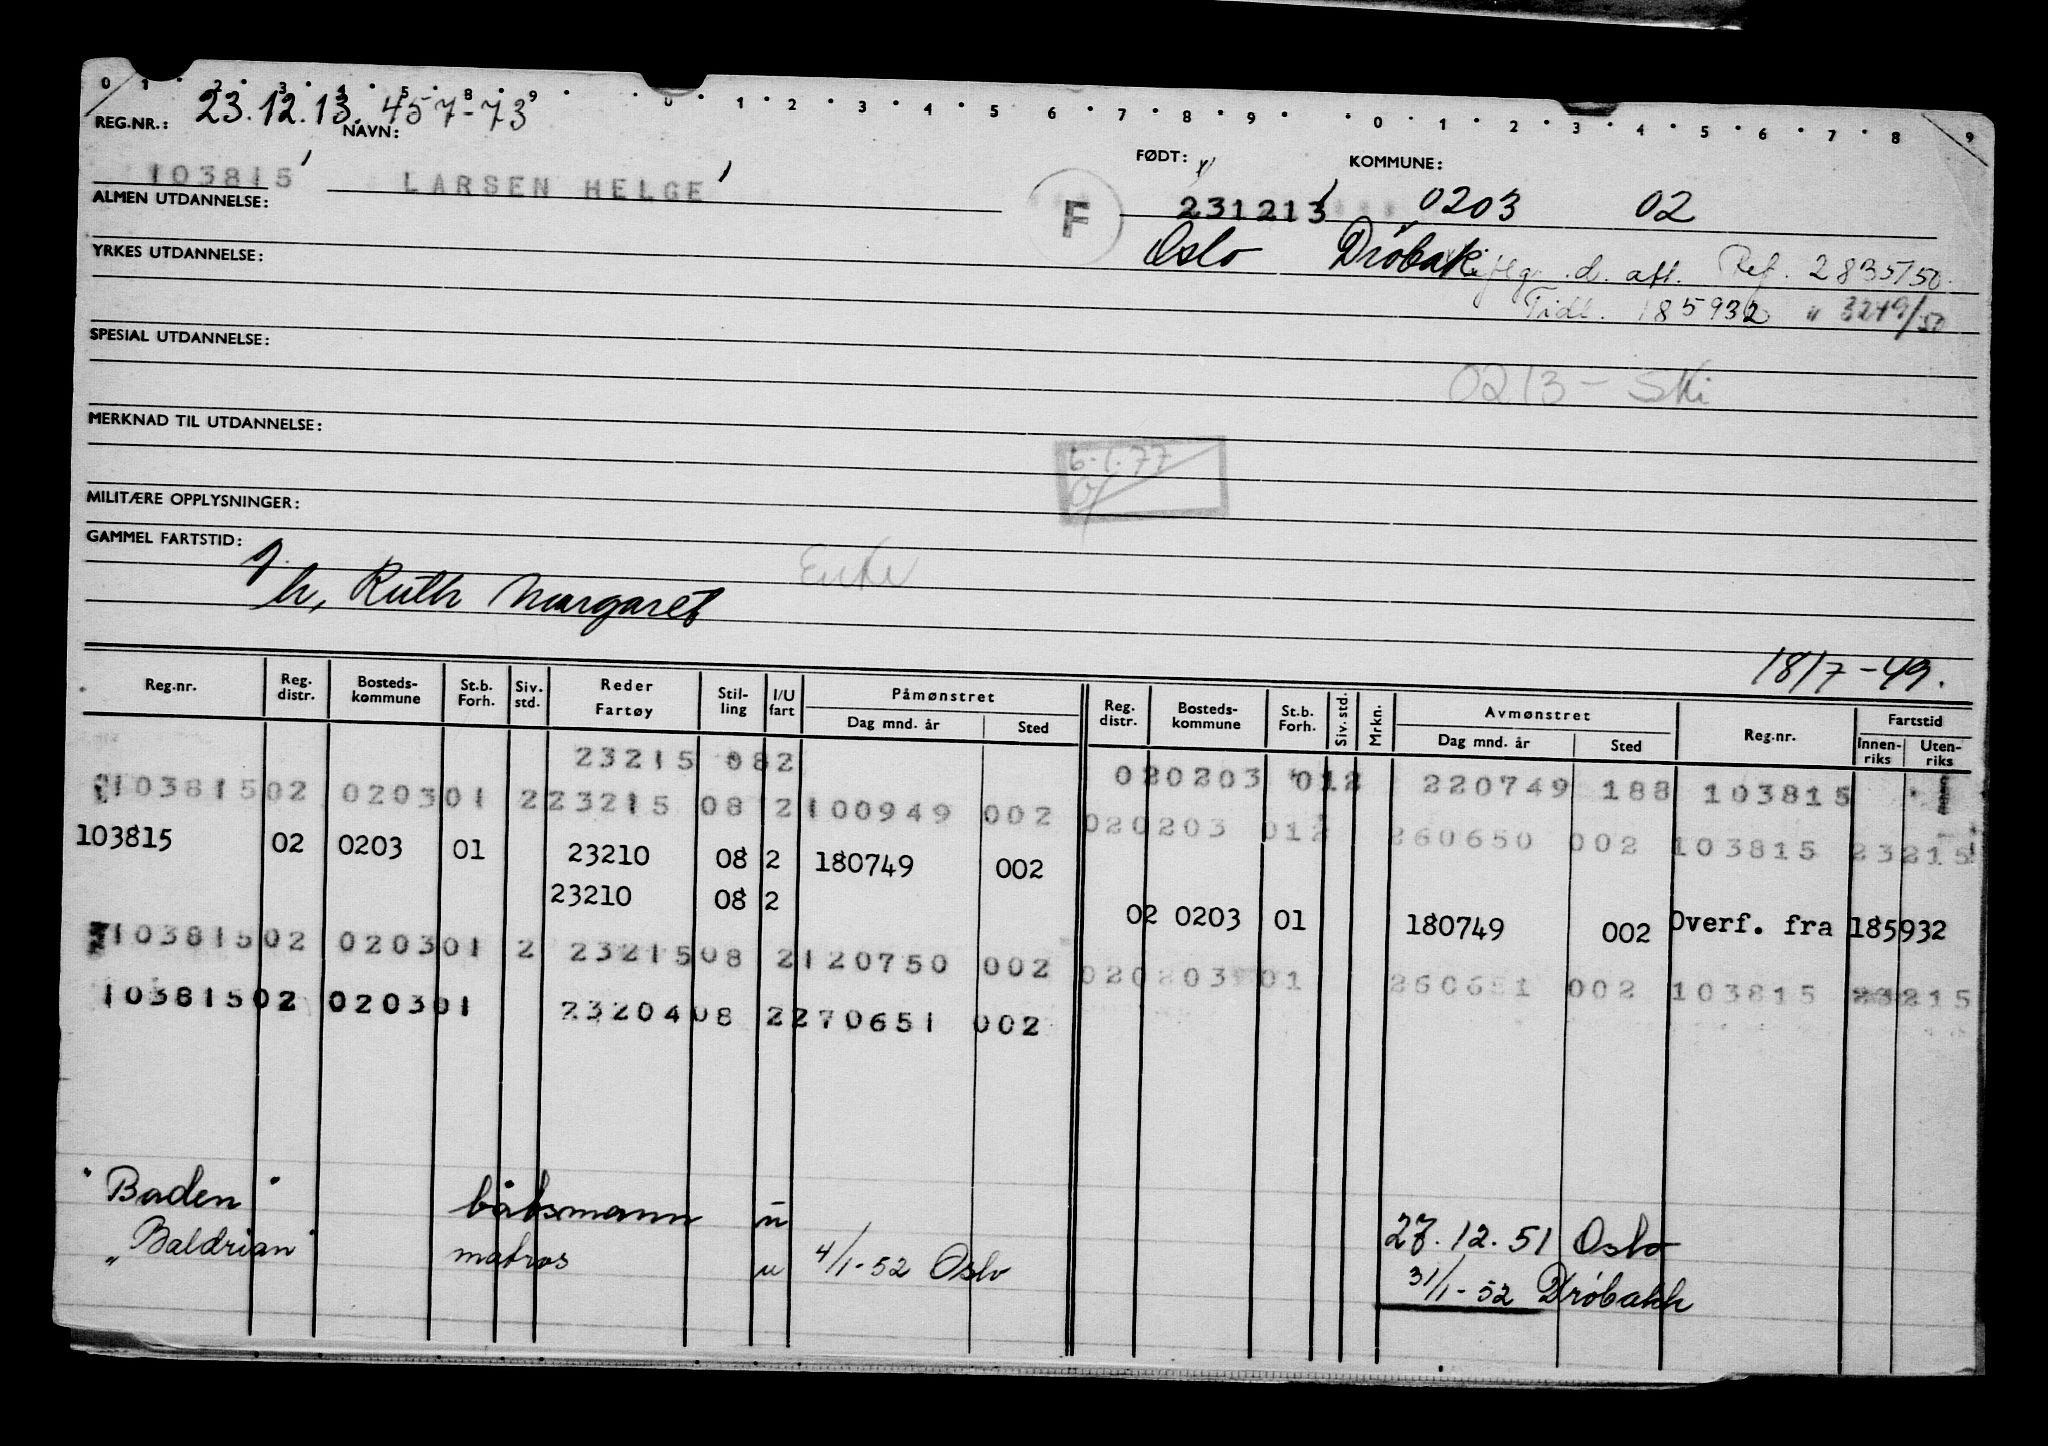 0 1 2 3 4 5 8 9 0 1 2 3 4 5 6 7 8 9 0 1 2 3 4 5 6 7 8 9
23.12.13. 457-73
REG.NR.: NAVN: FØDT: KOMMUNE:
103815 LARSEN HELGE F 231213 0203 02
ALMEN UTDANNELSE:
Oslo Drøbak iflg. d. att. Ref. 2835/50.
YRKES UTDANNELSE:
Tidl. 185932 " 3249/50
SPESIAL UTDANNELSE:
0213 - Ski
MERKNAD TIL UTDANNELSE:
6.1.77
MILITÆRE OPPLYSNINGER:
GAMMEL FARTSTID:
h, Ruth Margaret
18/7-49.
Reg.nr. Reg. distr. Bosteds-kommune St.b. Forh. Siv. std. Reder Fartøy Stil-ling I/U fart Påmønstret Dag mnd. år Sted Reg. distr. Bosteds-kommune St.b. Forh. Siv. std. Mrkn. Avmønstret Dag mnd. år Sted Reg.nr. Fartstid Innen-riks Uten-riks
23215 08 2 02 0203 01 2 220749 188 103815
103815 02 0203 01 2 23215 08 2 100949 002 02 0203 01 2 260650 002 103815 23215
103815 02 0203 01 23210 08 2 180749 002
23210 08 2 02 0203 01 180749 002 Overf. fra 185932
103815 02 0203 01 2 23215 08 2 120750 002 02 0203 01 260651 002 103815 23215
103815 02 0203 01 23204 08 2 270651 002
"Baden" båtsmann u 27.12.51 Oslo
"Baldrian" matros u 4/1-52 Oslo 31/1-52 Drøbakk